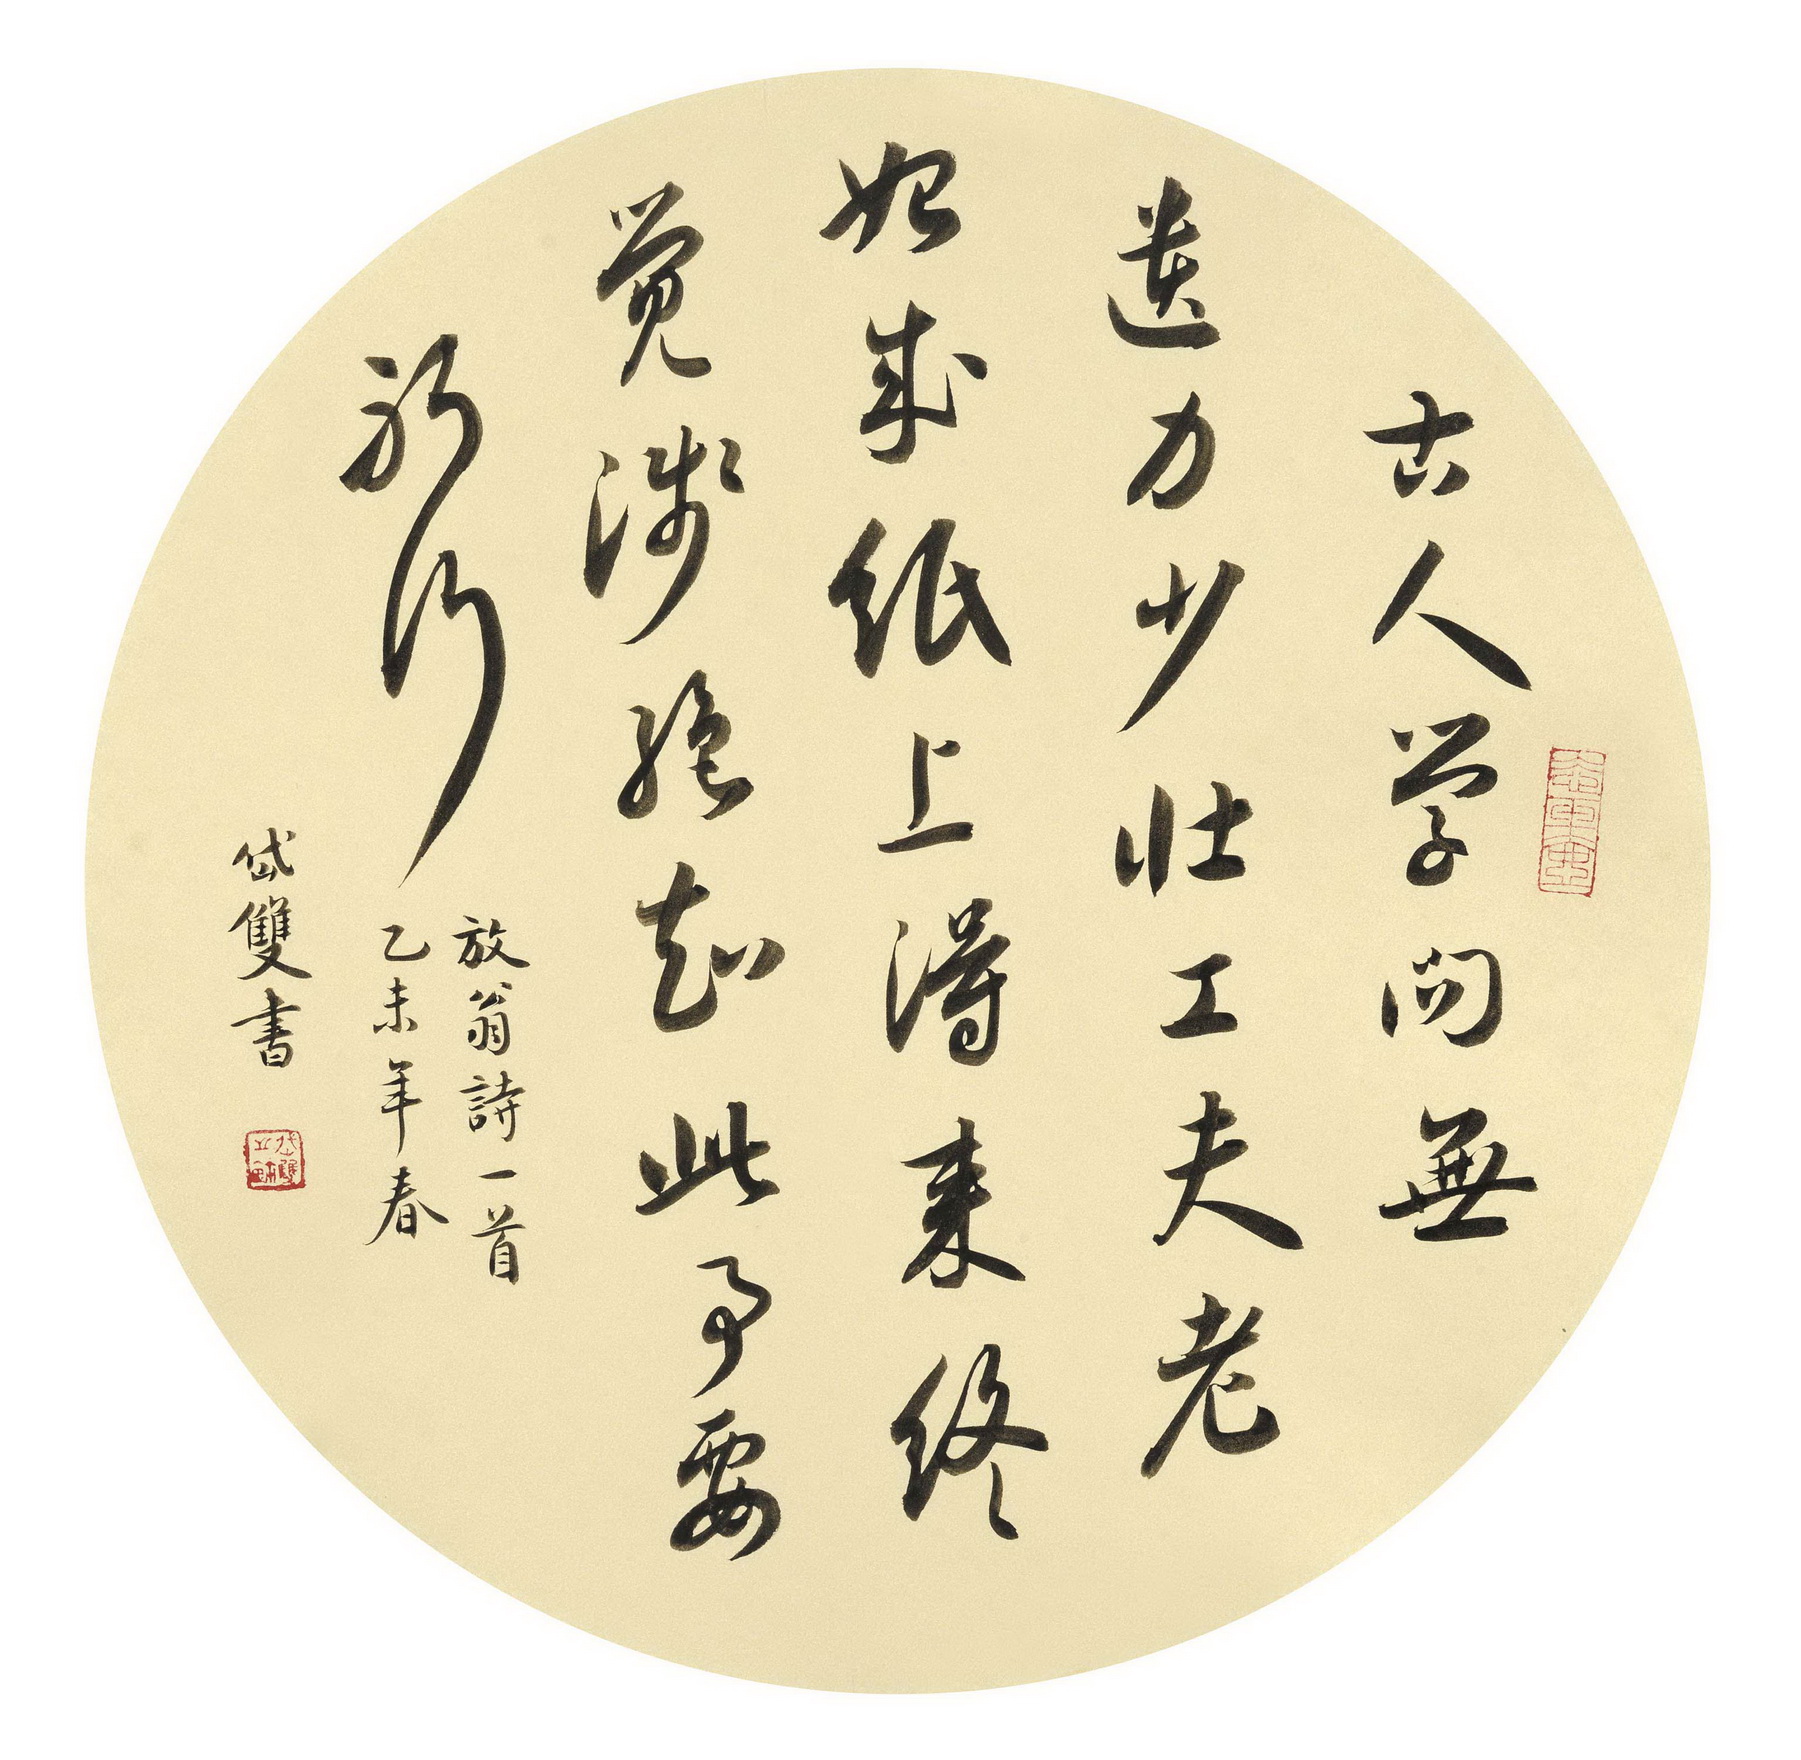 古人學問無
遺力少壯工夫老
始成紙上得來終
覺淺絕知此事要
躬行
放翁詩一首
乙未年春
岱雙書